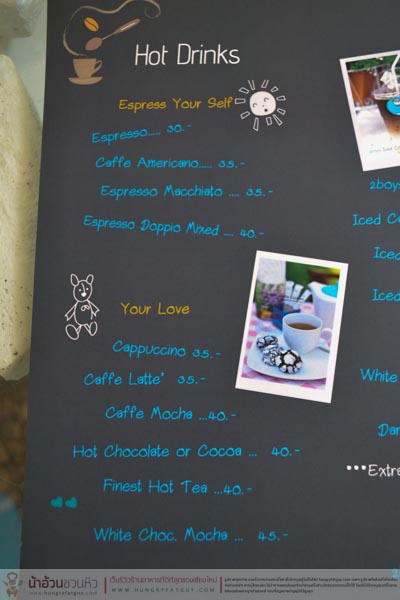 Hot Drinks
Espress Your Self
Espresso..... 30.-
Caffe Americano..... 35.-
Espresso Macchiato .... 35.-
Espresso Doppio Mixed .... 40.-
Your Love
Cappuccino 35.-
Caffe Latte' 35.-
Caffe Mocha ...40.-
Hot Chocolate or Cocoa ... 40.-
Finest Hot Tea ...40.-
White Choc. Mocha ... 45.-
2boys
Iced
Iced
Iced
White
•••Extra
น้าอ้วนชวนหิว
www.hungryfatguy.com
เว็บรีวิวร้านอาหารที่ดีที่สุดของเชียงใหม่
WWW.HUNGRYFATGUY.COM